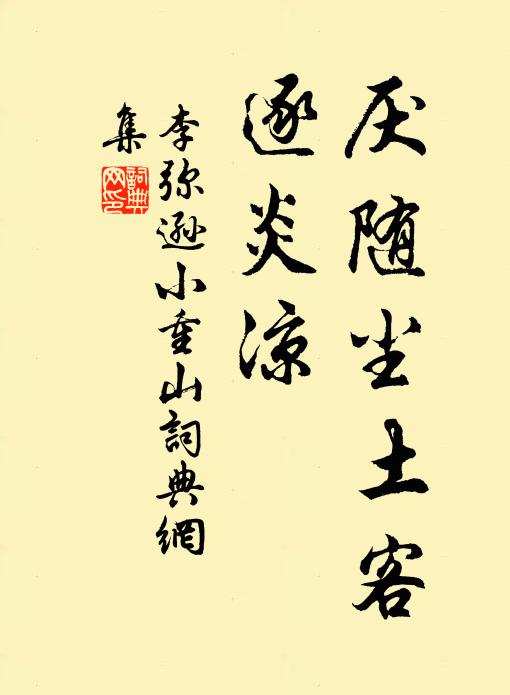 厌随尘土客
逐炎凉
李弥逊小重山詞典網
集
詞典
网印